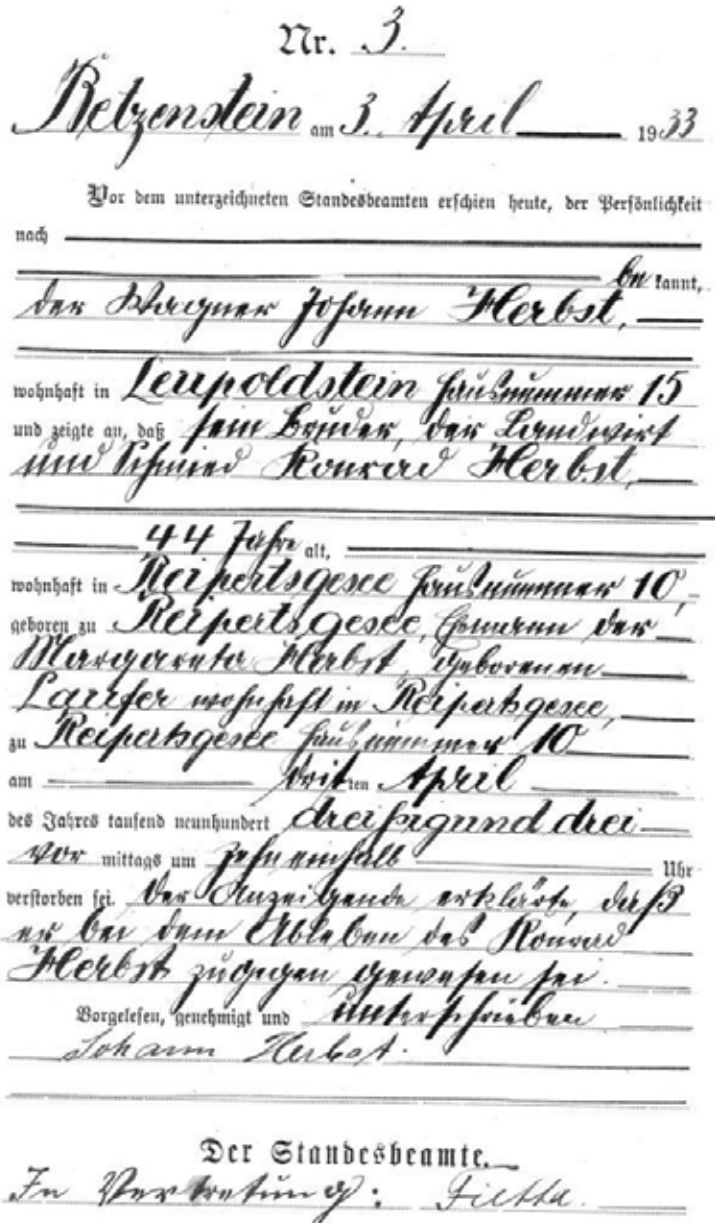 Nr. 3.
Betzenstein am 3. April 1933
Vor dem unterzeichneten Standesbeamten erschien heute, der Persönlichkeit
nach
be kannt,
der Wagner Johann Herbst,
wohnhaft in Leupoldstein Hausnummer 15
und zeigte an, daß sein Bruder, der Landwirt
und Schmied Konrad Herbst,
44 Jahre alt,
wohnhaft in Reipertsgesee Hausnummer 10,
geboren zu Reipertsgesee, Ehemann der
Margareta Herbst, geborenen
Laufer wohnhaft in Reipertsgesee,
zu Reipertsgesee Hausnummer 10
am dritten April
des Jahres tausend neunhundert dreißigund drei
vor mittags um zehn einhalb Uhr
verstorben sei. Der Anzeigende erklärte, daß
er bei dem Ableben des Konrad
Herbst zugegen gewesen sei.
Vorgelesen, genehmigt und unterschrieben
Johann Herbst.
Der Standesbeamte.
In Vertretung: